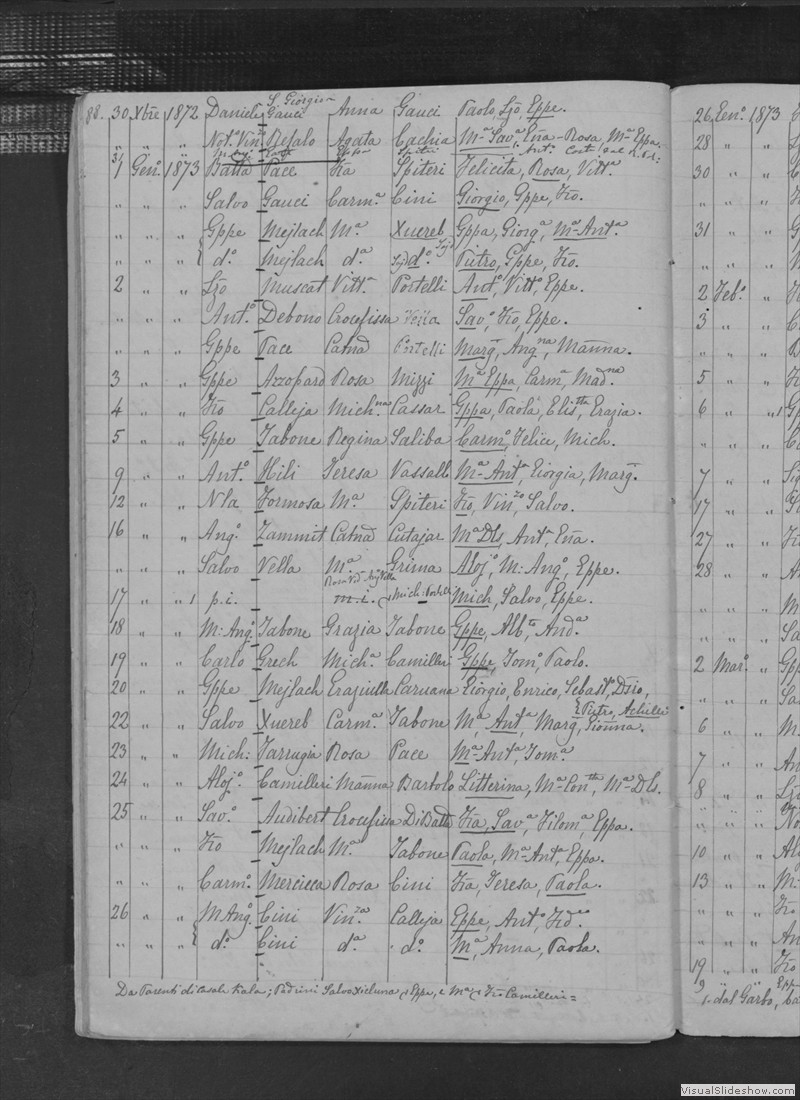 S. Giorgio
88. 30 Xbre 1872 Daniele Gauci Anna Gauci Paolo, Ljo, Eppe.
" " " Not. Vinzo Refalo Agata Cachia Ma Sava, Ena - Rosa, Ma Eppa.
31 Geno 1873 Batta Pace Fca Spiteri Felicita, Rosa, Vitta
" " " Salvo Gauci Carma Cini Giorgio, Gppe, Fco.
" " " Gppe Mejlach Ma Xuereb Gppa, Giorga, Ma Anta.
" " " { do Mejlach da do Pietro, Gppe, Fco.
2 " " Ljo Muscat Vitta Portelli Anto, Vitto, Eppe.
" " " Anto Debono Crocefissa Vella Savo, Fco, Eppe.
" " " Gppe Pace Catna Portelli Marg, Angna, Manna.
3 " " Gppe Azzopard Rosa Mizzi Ma Eppa, Carma, Madna
4 " " Fco Calleja Michna Cassar Gppa, Paola, Elistta, Grazia.
5 " " Gppe Tabone Regina Saliba Carmo, Felice, Mich.
9 " " Anto Hili Teresa Vassallo Ma Anta, Giorgia, Marg.
12 " " Nla Formosa Ma Spiteri Fco, Vinzo, Salvo.
16 " " Ango Zammit Catna Cutajar Ma Dls, Anta, Ena.
" " " Salvo Vella Ma Grima Alojo, M: Ango, Eppe.
17 " " 1 p.i. m.i. Mich, Salvo, Eppe.
18 " " M: Ango Tabone Grazia Tabone Gppe, Albto, Anda.
19 " " Carlo Grech Micha Camilleri Gppe, Tomo, Paolo.
20 " " Gppe Mejlach Graziulla Caruana Giorgio, Enrico, Sebasto, Dsio,
{ Pietro, Achille
22 " " Salvo Xuereb Carma Tabone Ma, Anta, Marg, Gionna.
23 " " Mich: Farrugia Rosa Pace Ma Anta, Toma.
24 " " Alojo Camilleri Manna Bartolo Litterina, Ma Contta, Ma Dls.
25 " " Savo Audibert Crocefissa DiBatta Fca, Sava, Filoma, Eppa.
" " " Fco Mejlach Ma Tabone Paola, Ma Anta, Eppa.
" " " Carmo Mercieca Rosa Cini Fca, Teresa, Paola.
26 " " M Ango Cini Vinza Calleja Eppe, Anto, Fco
" " " { do Cini da do Ma, Anna, Paola.
Da Parenti di casale Kala; Padrini Salvo Xicluna, e Eppe, e Ma, e Fco Camilleri =
26 Geno 1873
28 " "
30 " "
" " "
31 " "
2 Febo "
3 " "
5 " "
6 " "
7 " "
17 " "
27 " "
28 " "
2 Maro "
6 " "
7 " "
8 " "
10 " "
13 " "
19 " "
1. dal Garbo,
VisualSlideshow.com